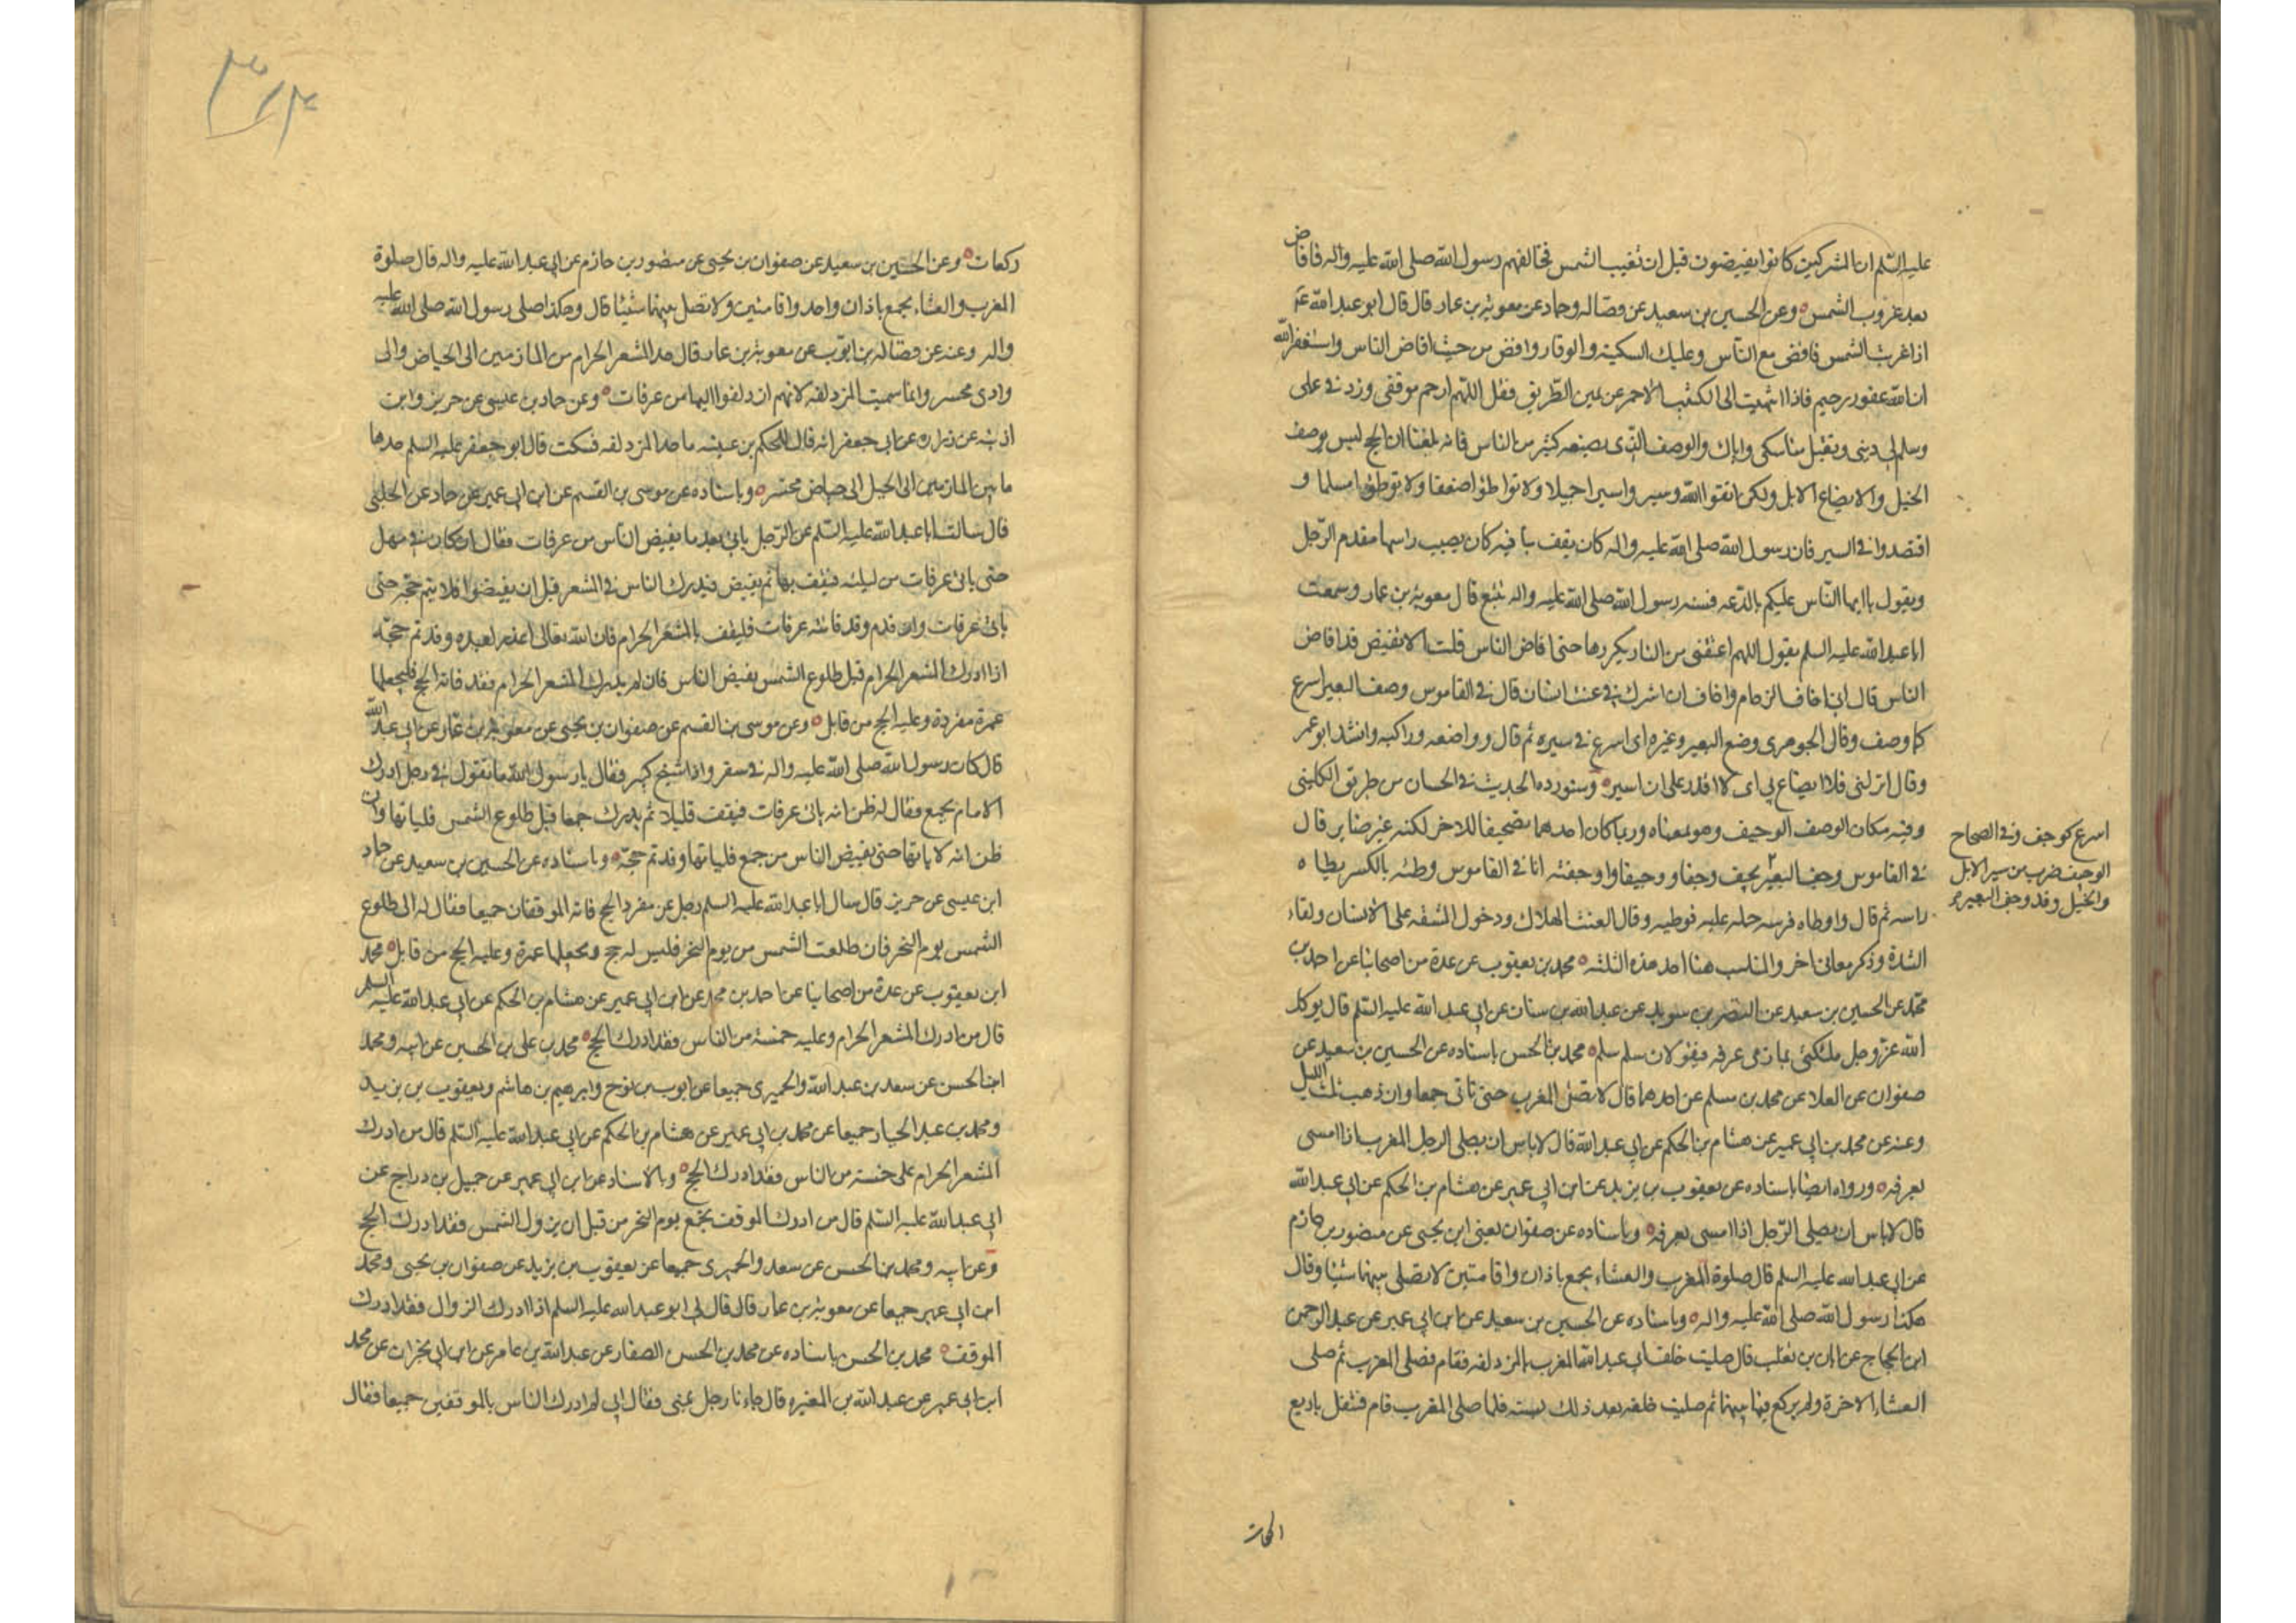 عليه السلم ان المشركين كانوا يفيضون قبل ان تغيب الشمس فخالفهم رسول الله صلى الله عليه واله فافاض
بعد غروب الشمس وعن الحسين بن سعيد عن فضاله وحماد عن معوية بن عمار قال قال ابو عبد الله ع
اذا غربت الشمس فافض مع الناس وعليك السكينه والوقار وافض من حيث افاض الناس واستغفر الله
ان الله غفور رحيم فاذا انتهيت الى الكثيب الاحمر عن يمين الطريق فقل اللهم ارحم موقفي وزد في علمي
وسلم لي ديني وتقبل مناسكي واياك والوصف الذي يصنعه كثير من الناس فانه بلغنا ان الحج ليس بوصف
الخيل ولا ايضاع الابل ولكن اتقوا الله وسيروا سيرا جميلا ولا توا طؤا ضعفا ولا توطئوا مسلما و
اقتصدوا في السير فان رسول الله صلى الله عليه واله كان يقف بنا فيه كان يصيب راسها مقدم الرحل
ويقول يا ايها الناس عليكم بالدعه فسنه رسول الله صلى الله عليه واله تتبع قال معوية بن عمار وسمعت
ابا عبد الله عليه السلم يقول اللهم اعتقني من النار يكررها حتى افاض الناس قلت الا تفيض قد افاض
الناس قال اني اخاف الزحام واخاف ان اشرك في عنت انسان قال في القاموس وصف البعير اسرع
كاوصف وقال الجوهري وضع البعير وغيره اي اسرع في سيره ثم قال وواضعه وراكبه وانشد ابو عمر
وقال انزلني فلا ايضاع بي اي لا اقدر على ان اسير وسنورد هذا الحديث في الحسان من طريق الكليني
وفيه مكان الوصف الوجيف وهو بمعناه وربما كان احدهما تصحيفا للاخر لكنه غير ضاير قال
في القاموس وجف البعير يجف وجفا ووجيفا واوجفته انا في القاموس وطئه بالكسر يطاه
راسه ثم قال واوطاه فرسه حمله عليه فوطيه وقال العنت الهلاك ودخول المشقه على الانسان ولقاء
الشدة وذكر معاني اخر والمناسب هنا احد هذه الثلثه محمد بن يعقوب عن عدة من اصحابنا عن احمد بن
محمد عن الحسين بن سعيد عن النضر بن سويد عن عبد الله بن سنان عن ابي عبد الله عليه السلم قال يوكل
الله عز وجل ملكين بمازمي عرفه فيقولان سلم سلم محمد بن الحسن باسناده عن الحسين بن سعيد عن
صفوان عن العلا عن محمد بن مسلم عن احدهما قال لا تصل المغرب حتى تاتي جمعا وان ذهب ثلث الليل
وعنه عن محمد بن ابي عمير عن هشام بن الحكم عن ابي عبد الله قال لا باس ان يصلي الرجل المغرب اذا امسى
بعرفه ورواه ايضا باسناده عن يعقوب بن يزيد عن ابن ابي عمير عن هشام بن الحكم عن ابي عبد الله
قال لا باس ان يصلي الرجل اذا امسى بعرفه وباسناده عن صفوان يعني ابن يحيى عن منصور بن حازم
عن ابي عبد الله عليه السلم قال صلوة المغرب والعشاء بجمع باذان واقامتين لا تصلي بينهما شيئا وقال
هكذا رسول الله صلى الله عليه واله وباسناده عن الحسين بن سعيد عن ابن ابي عمير عن عبد الرحمن
ابن الحجاج عن ابان بن تغلب قال صليت خلف ابي عبد الله المغرب بالمزدلفه فقام فصلى المغرب ثم صلى
العشاء الاخرة ولم يركع فيما بينهما ثم صليت خلفه بعد ذلك بسنه فلما صلى المغرب قام فتنفل باربع
اسرع كوجف وفي الصحاح
الوجيف ضرب من سير الابل
والخيل وقد وجف البعير
ركعات وعن الحسين بن سعيد عن صفوان بن يحيى عن منصور بن حازم عن ابي عبد الله عليه واله قال صلوة
المغرب والعشاء بجمع باذان واحد واقامتين ولا تصل بينهما شيئا قال وهكذا صلى رسول الله صلى الله عليه
واله وعنه عن فضاله بن ايوب عن معوية بن عمار قال حد المشعر الحرام من المازمين الى الحياض والى
وادي محسر وانما سميت المزدلفه لانهم ازدلفوا اليها من عرفات وعن حماد بن عيسى عن حريز وابن
اذينه عن زراره عن ابي جعفر انه قال للحكم بن عيينه ما حد المزدلفه فسكت قال ابو جعفر عليه السلم حدها
ما بين المازمين الى الجبل الى حياض محسر وباسناده عن موسى بن القسم عن ابن ابي عمير عن حماد عن الحلبي
قال سالت ابا عبد الله عليه السلم عن الرجل ياتي بعد ما يفيض الناس من عرفات فقال ان كان في مهل
حتى ياتي عرفات من ليلته فيقف بها ثم يفيض فيدرك الناس في المشعر قبل ان يفيضوا فلا يتم حجه حتى
ياتي عرفات وان قدم وقد فاتته عرفات فليقف بالمشعر الحرام فان الله تعالى اعذر لعبده وقد تم حجه
اذا ادرك المشعر الحرام قبل طلوع الشمس يفيض الناس فان لم يدرك المشعر الحرام فقد فاته الحج فليجعلها
عمرة مفردة وعليه الحج من قابل وعن موسى بن القسم عن صفوان بن يحيى عن معوية بن عمار عن ابي عبد الله
قال كان رسول الله صلى الله عليه واله في سفر واذا شيخ كبير فقال يا رسول الله ما تقول في رجل ادرك
الامام بجمع فقال له ظن انه ياتي عرفات فيقف قليلا ثم يدرك جمعا قبل طلوع الشمس فلياتها وان
ظن انه لا ياتها حتى يفيض الناس من جمع فلياتها وقد تم حجه وباسناده عن الحسين بن سعيد عن حماد
ابن عيسى عن حريز قال سال ابا عبد الله عليه السلم رجل عن مفرد الحج فاته الموقفان جميعا فقال له الى طلوع
الشمس يوم النحر فان طلعت الشمس من يوم النحر فليس له حج ويجعلها عمرة وعليه الحج من قابل محمد
ابن يعقوب عن عدة من اصحابنا عن احمد بن محمد عن ابن ابي عمير عن هشام بن الحكم عن ابي عبد الله عليه السلم
قال من ادرك المشعر الحرام وعليه خمسة من الناس فقد ادرك الحج محمد بن علي بن الحسين عن ابيه ومحمد
ابن الحسن عن سعد بن عبد الله والحميري جميعا عن ايوب بن نوح وابرهيم بن هاشم ويعقوب بن يزيد
ومحمد بن عبد الجبار جميعا عن محمد بن ابي عمير عن هشام بن الحكم عن ابي عبد الله عليه السلم قال من ادرك
المشعر الحرام على خمسة من الناس فقد ادرك الحج وبالاسناد عن ابن ابي عمير عن جميل بن دراج عن
ابي عبد الله عليه السلم قال من ادرك الموقف بجمع يوم النحر من قبل ان يزول الشمس فقد ادرك الحج
وعن ابيه ومحمد بن الحسن عن سعد والحميري جميعا عن يعقوب بن يزيد عن صفوان بن يحيى ومحمد
ابن ابي عمير جميعا عن معوية بن عمار قال قال لي ابو عبد الله عليه السلم اذا ادرك الزوال فقد ادرك
الموقف محمد بن الحسن باسناده عن محمد بن الحسن الصفار عن عبد الله بن عامر عن ابن ابي نجران عن محمد
ابن ابي عمير عن عبد الله بن المغيره قال جاءنا رجل بمنى فقال اني لم ادرك الناس بالموقفين جميعا فقال